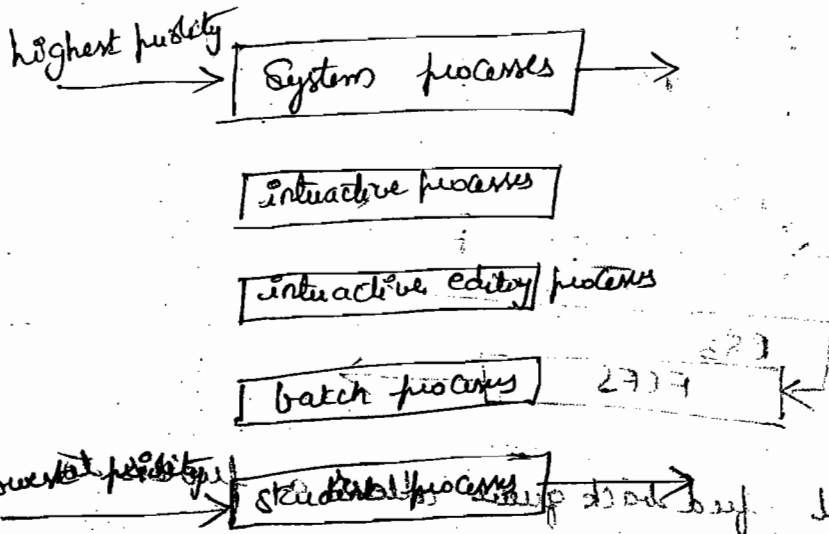 highest priority
System processes
interactive processes
interactive editing processes
batch processes
lowest priority
student processes